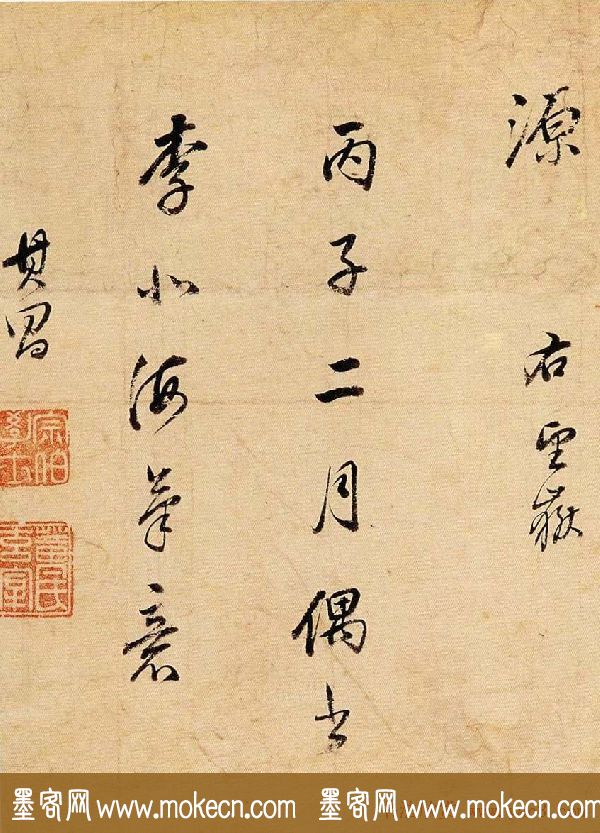 源 右望嶽
丙子二月偶書
李北海筆意
其昌
宗伯學士
董氏玄宰
墨客网 www.mokecn.com 墨客网 www.mokecn.com